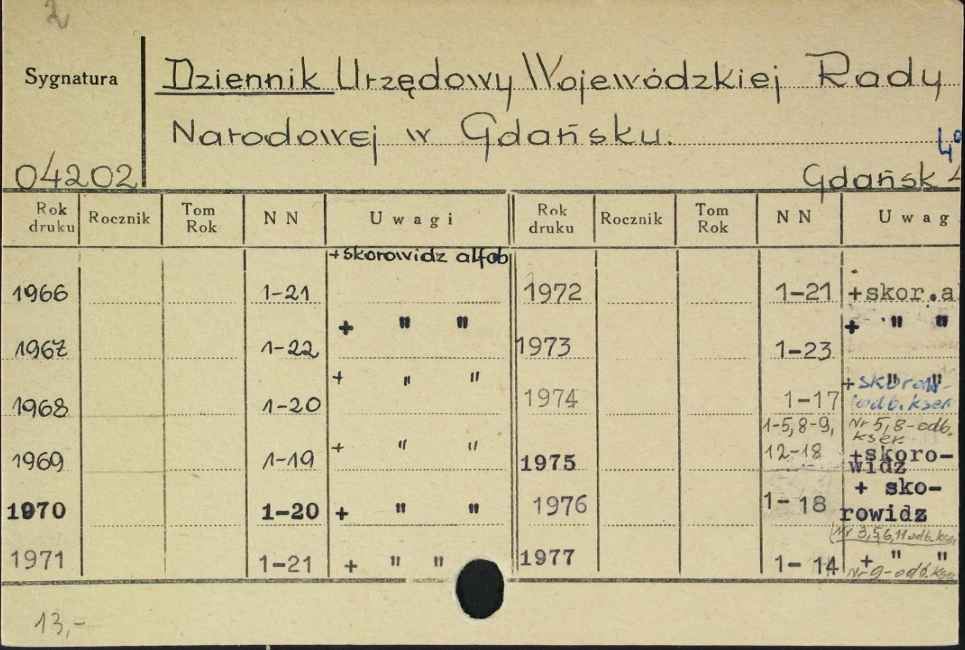 2
Sygnatura
Dziennik Urzędowy Wojewódzkiej Rady
Narodowej w Gdańsku.
4°
04202
Gdańsk 4
Rok druku Rocznik Tom Rok NN Uwagi Rok druku Rocznik Tom Rok NN Uwag
+skorowidz alfab
1966 1-21 1972 1-21 +skor.a
+ " " + " "
1967 1-22 1973 1-23
+ " " + " "
1968 1-20 1974 1-17 skorow- odb. kser
1-5, 8-9, Nr 5, 8-odb. kser.
+ " "
1969 1-19 1975 12-18 +skoro-widz
1970 1-20 + " " 1976 1-18 + sko-rowidz
Nr 3,5,6,11 odb. kser
1971 1-21 + " " 1977 1-14 + " "
Nr 9-odb. kser
13,-